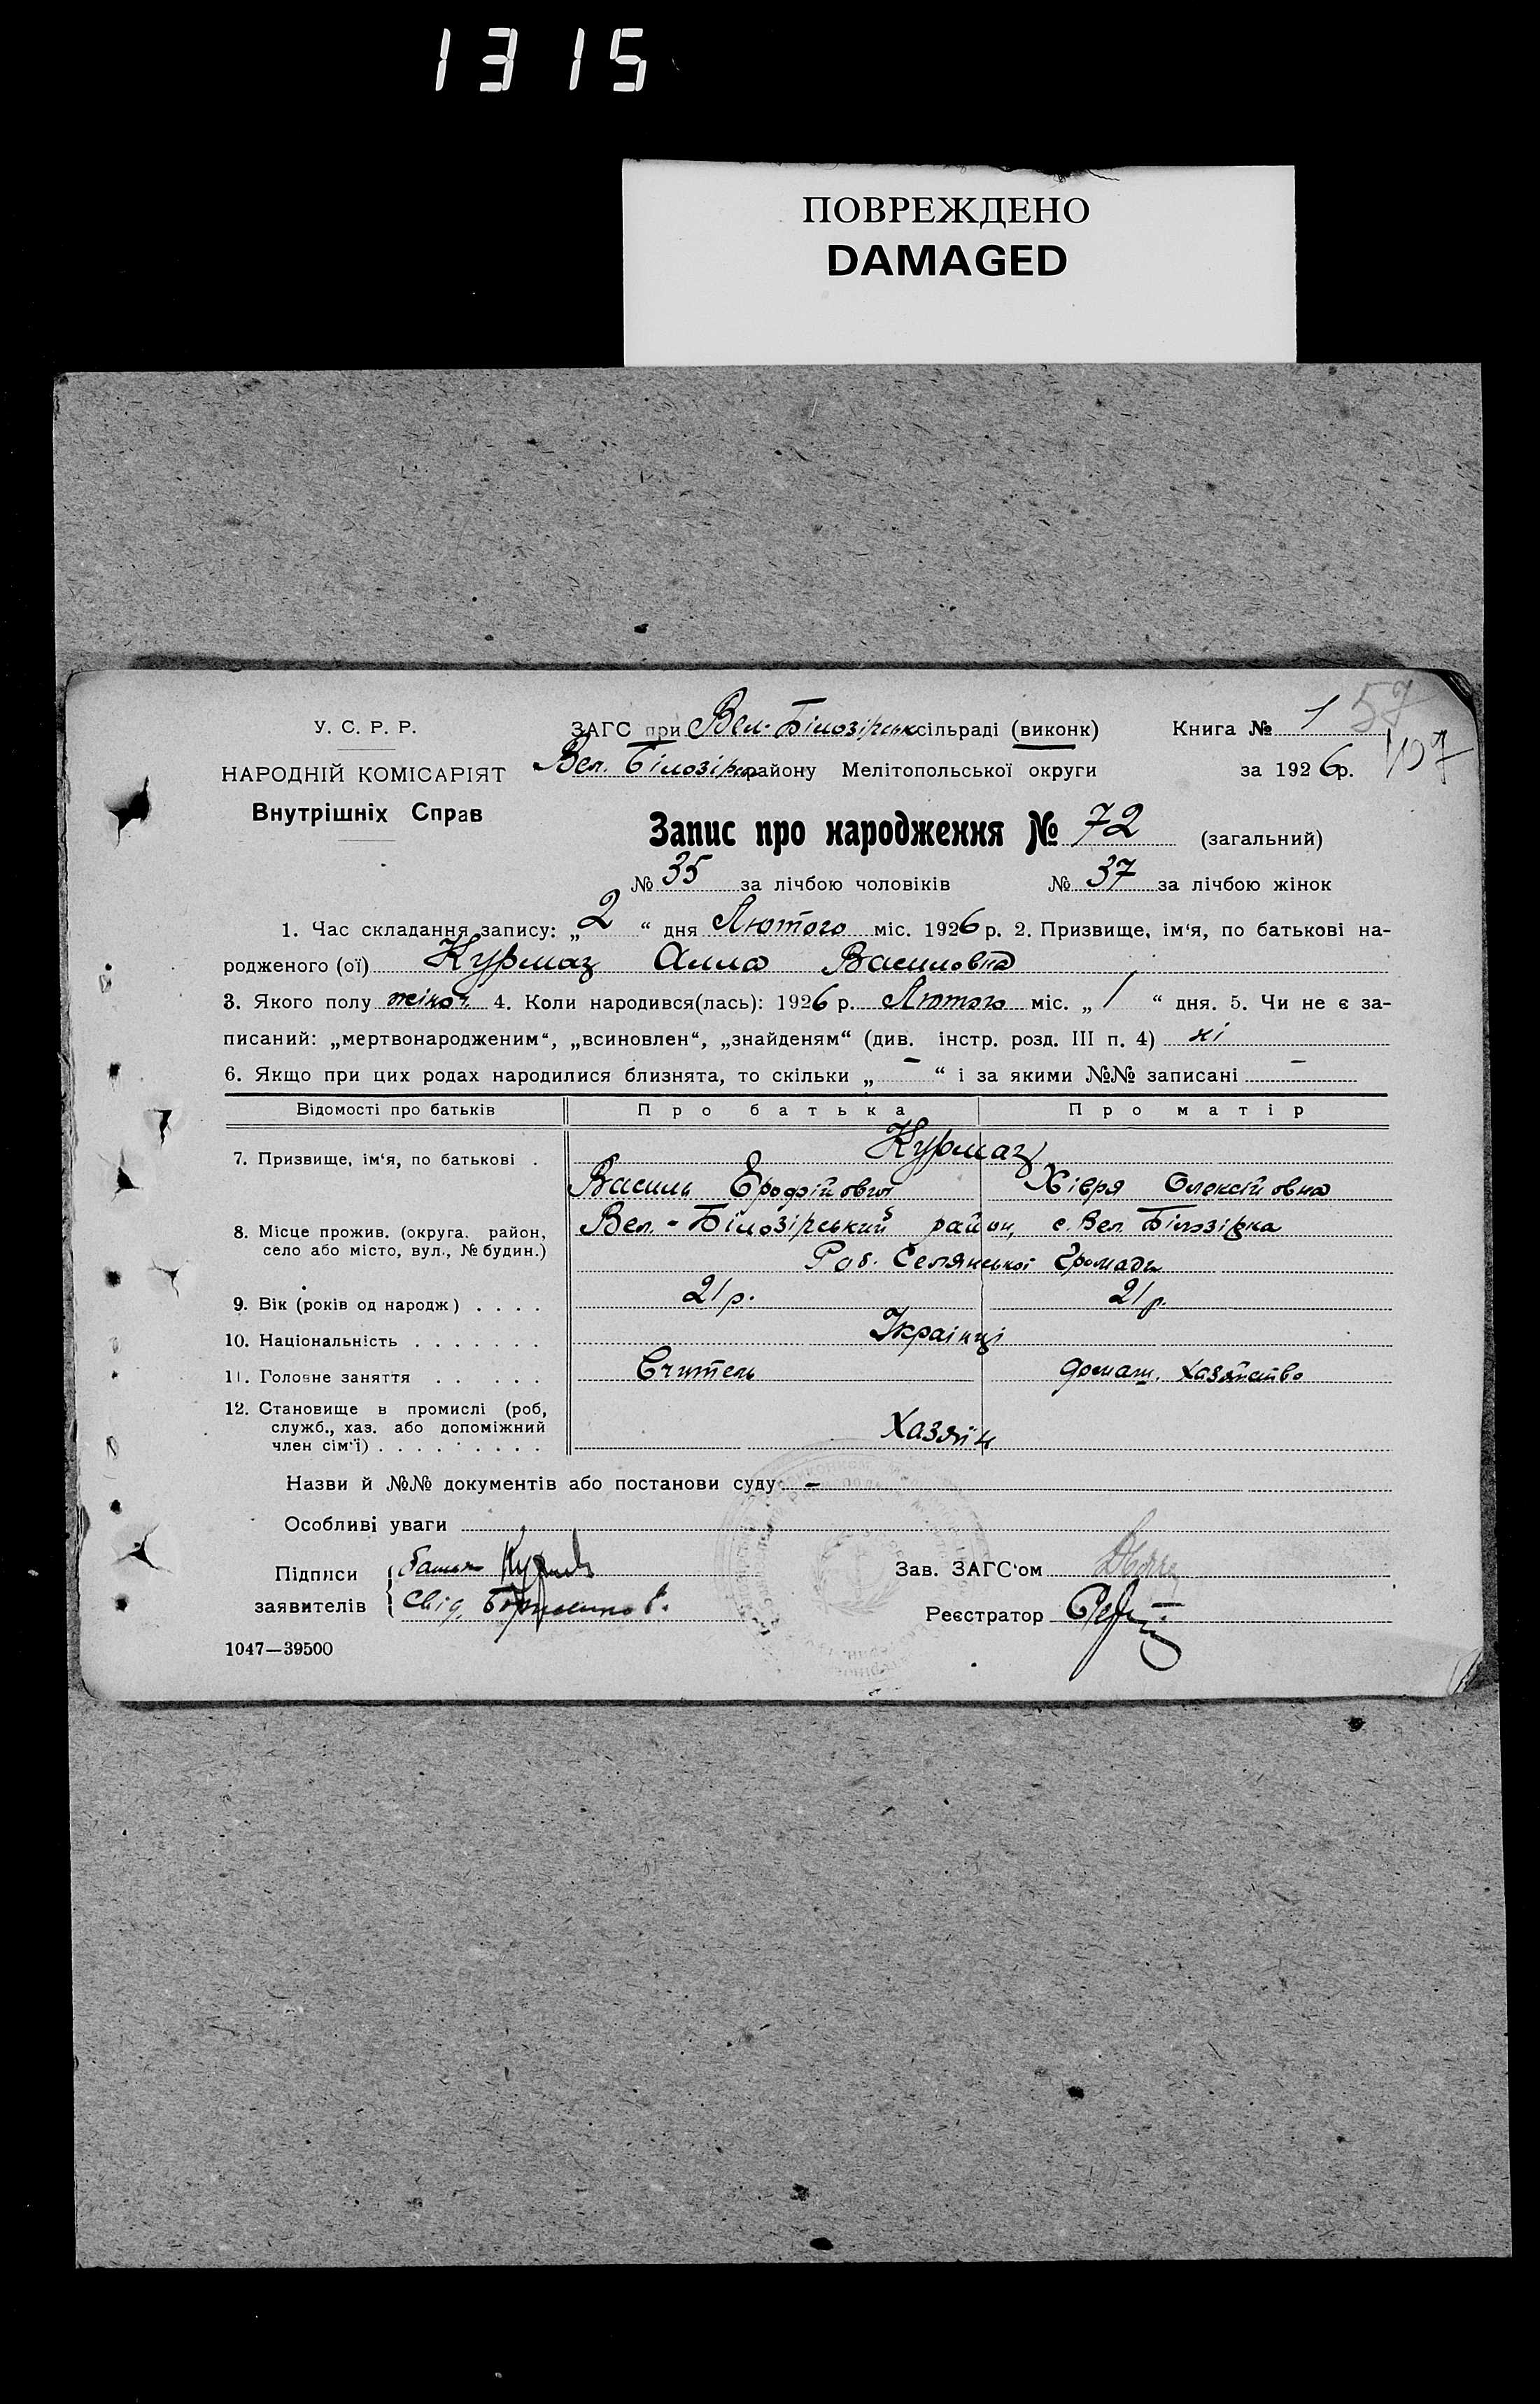 1315
ПОВРЕЖДЕНО
DAMAGED
У. С. Р. Р. ЗАГС при Вел.-Білозірськ сільраді (виконк) Книга № 1 57
НАРОДНІЙ КОМІСАРІЯТ Вел. Білозірськ району Мелітопольської округи за 1926 р. 107
Внутрішніх Справ
Запис про народження № 72 (загальний)
№ 35 за лічбою чоловіків № 37 за лічбою жінок
1. Час складання запису: „2“ дня Лютого міс. 1926 р. 2. Призвище, ім‘я, по батькові на-
родженого (ої) Курмаз Алла Василовна
3. Якого полу жіноч. 4. Коли народився(лась): 1926 р. Лютого міс. „1“ дня. 5. Чи не є за-
писаний: „мертвонародженим“, „всиновлен“, „знайденям“ (див. інстр. розд. III п. 4) ні
6. Якщо при цих родах народилися близнята, то скільки „ - “ і за якими №№ записані -
Відомості про батьків Про батька Про матір
7. Призвище, ім‘я, по батькові . Курмаз
Василь Єрофійович Хівря Олексійовна
8. Місце прожив. (округа. район, село або місто, вул., № будин.) Вел.-Білозірський район, с. Вел. Білозірка
Роб. Селянської Громади
9. Вік (років од народж) . . . . 21 р. 21 р.
10. Національність . . . . . . . Українці
11. Головне заняття . . . . . Вчитель домаш. хазяйство
12. Становище в промислі (роб,
служб., хаз. або допоміжний
член сім‘ї) . . . . . . . . . Хазяїн
Назви й №№ документів або постанови суду -
Особливі уваги
Підписи батько Зав. ЗАГС‘ом
заявителів Свід. Реєстратор
1047—39500